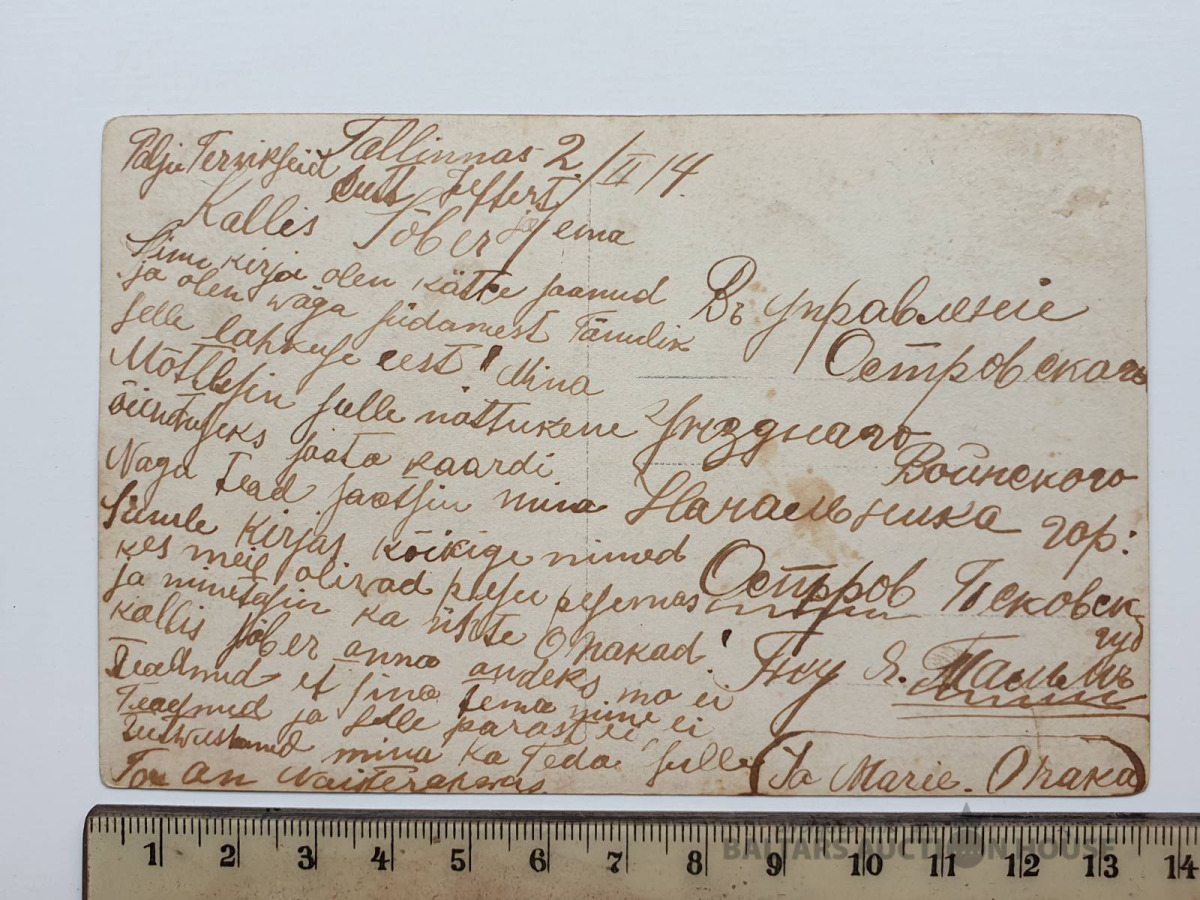 Palju Terwiseid
Tallinnas 2/II 14
Kallis Sõber ja ema
Sinu kirja olen kätte saanud
ja olen wäga südamest Tänulik
selle lahkuse eest! Mina
Mõtlesin selle nattukene
saata kaardi
Naga Tead saatsin mina
Sinule kirjas kõikige nimed
kes meie olivad
ja nimetasin ka ühte Onakad!
kallis sõber anna andeks ma ei
Teadnud et sina tema nime ei
ja selle parast ei
mina ka Teda sulle
Ja Marie. Onaka
Въ управленіе
Островскаго
Уѣзднаго
Воинскаго
Начальника гор:
Островъ Псковск
губ
Гну Я. Тальмъ
1 2 3 4 5 6 7 8 9 10 11 12 13 14
BALTARS AUCTION HOUSE